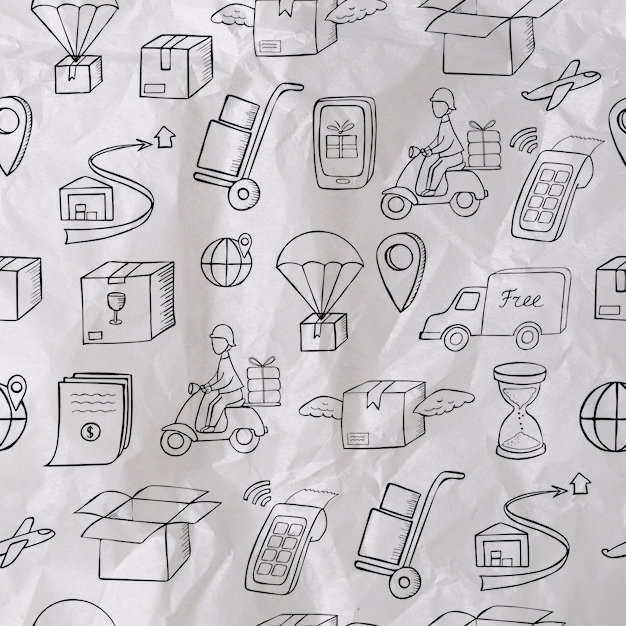 Free
$